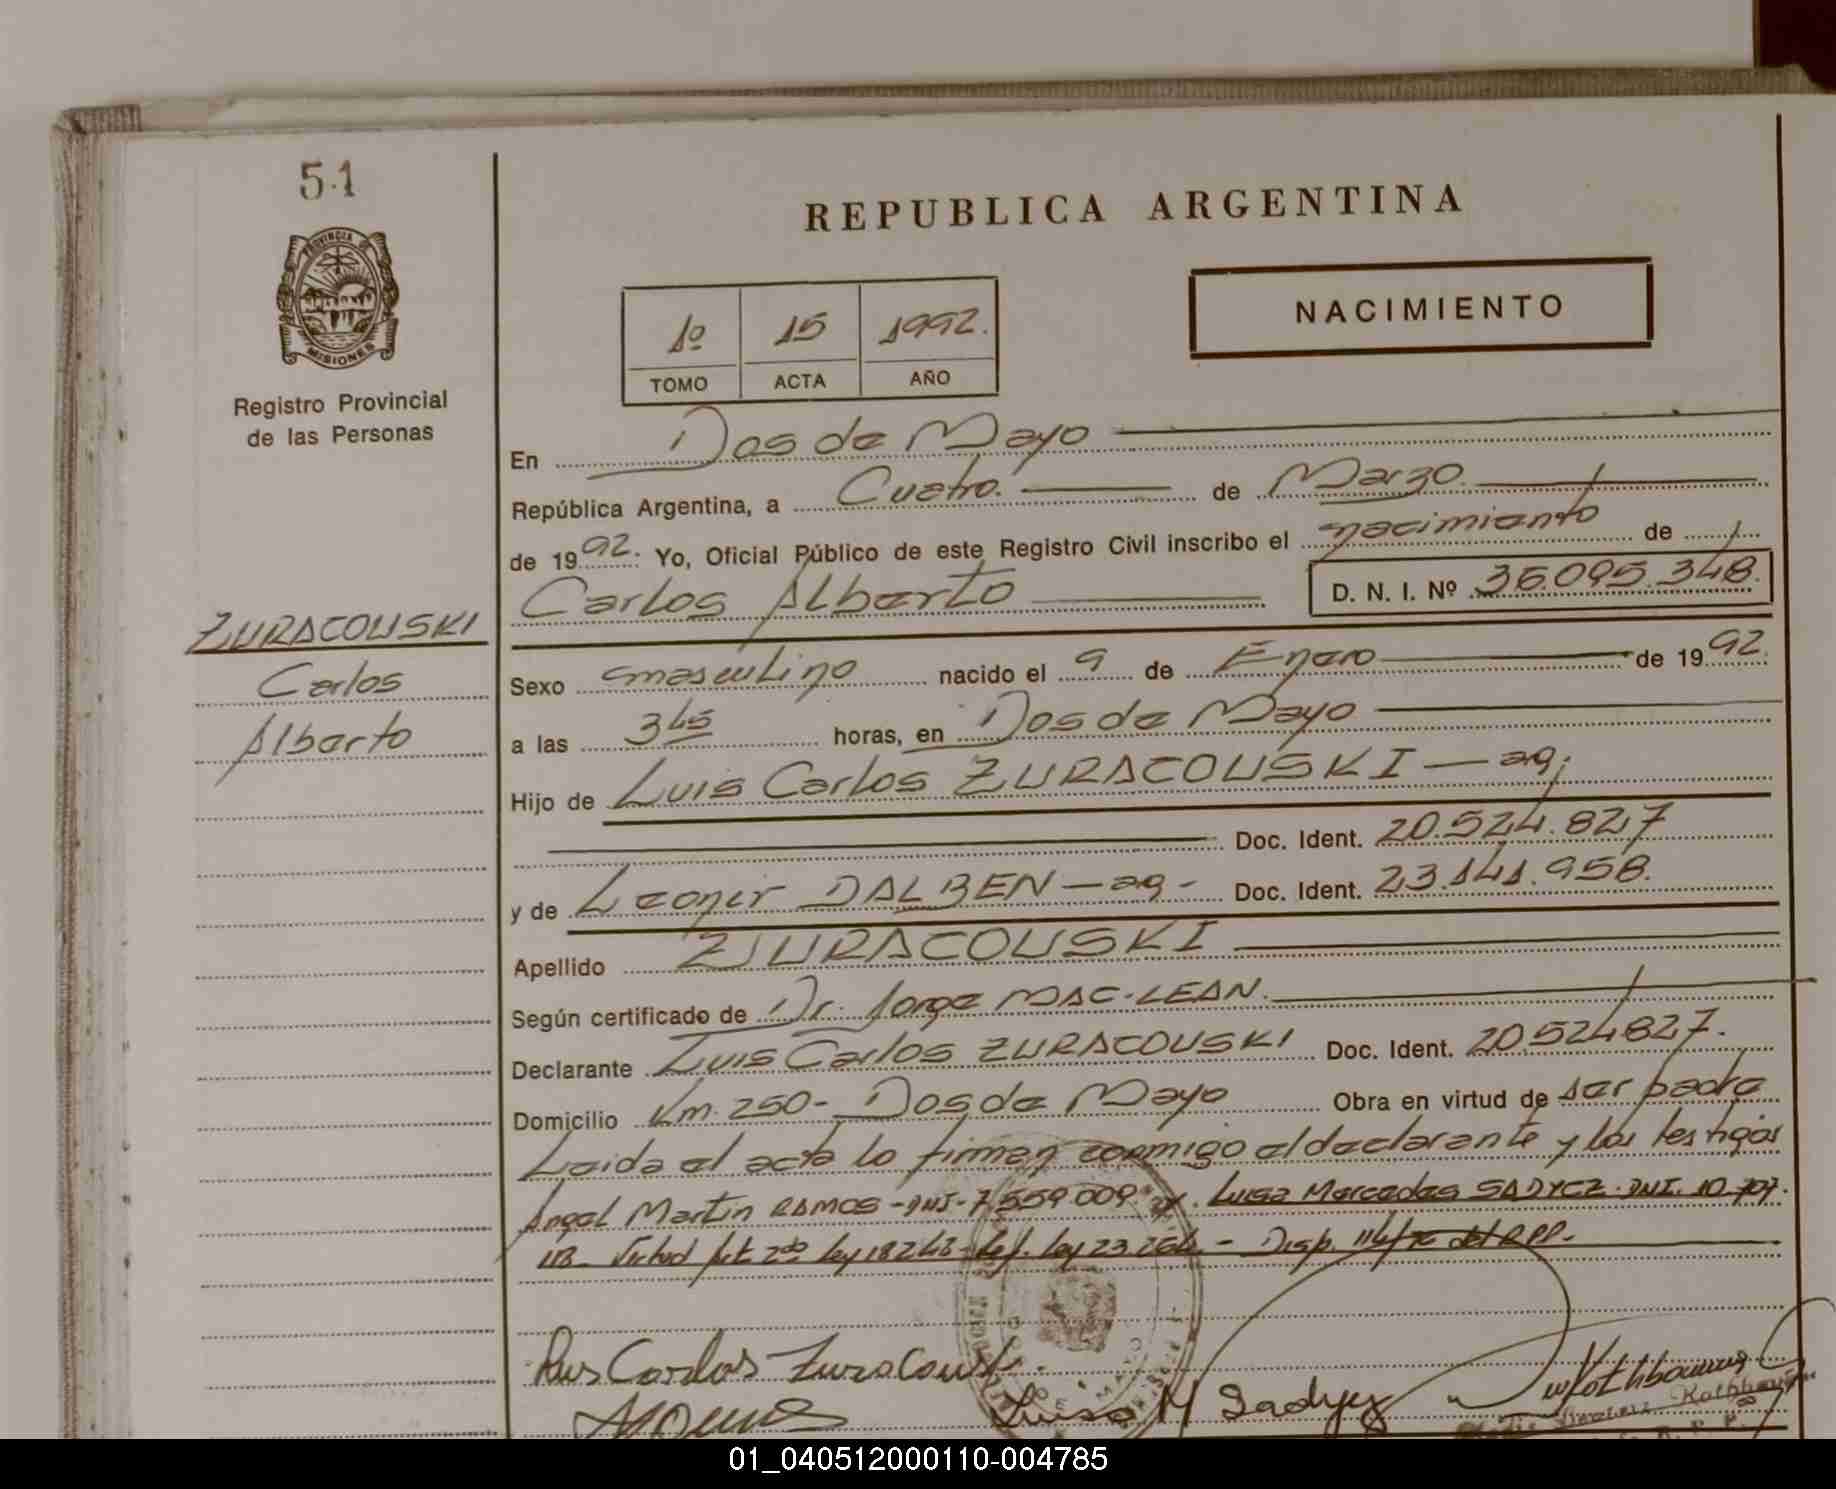 51
REPUBLICA ARGENTINA
PROVINCIA DE
MISIONES
Registro Provincial
de las Personas
NACIMIENTO
1º 15 1992.
TOMO ACTA AÑO
En Dos de Mayo
República Argentina, a Cuatro. de Marzo.
de 1992. Yo, Oficial Público de este Registro Civil inscribo el nacimiento de
Carlos Alberto D. N. I. Nº 36.095.348.
ZURACOUSKI
Carlos
Alberto
Sexo masculino nacido el 9 de Enero de 1992.
a las 3 45 horas, en Dos de Mayo
Hijo de Luis Carlos ZURACOUSKI — ag;
Doc. Ident. 20.524.827
y de Leonir DALBEN — ag - Doc. Ident. 23.141.958.
Apellido ZURACOUSKI
Según certificado de Dr. Jorge MAC-LEAN.
Declarante Luis Carlos ZURACOUSKI Doc. Ident. 20.524827.
Domicilio Km. 250 - Dos de Mayo Obra en virtud de ser padre
Leida el acta lo firman conmigo el declarante y los testigos
Angel Martin RAMOS - DNI - 7.559.009 y. Luisa Mercedes SADYCZ. DNI. 10.707.
113 - Virtud Art. 2do Ley 18.248 - Ley 23.264 - Disp. del RPP.-
Luis Carlos Zuracouski.
Luisa M Sadycz
01_040512000110-004785